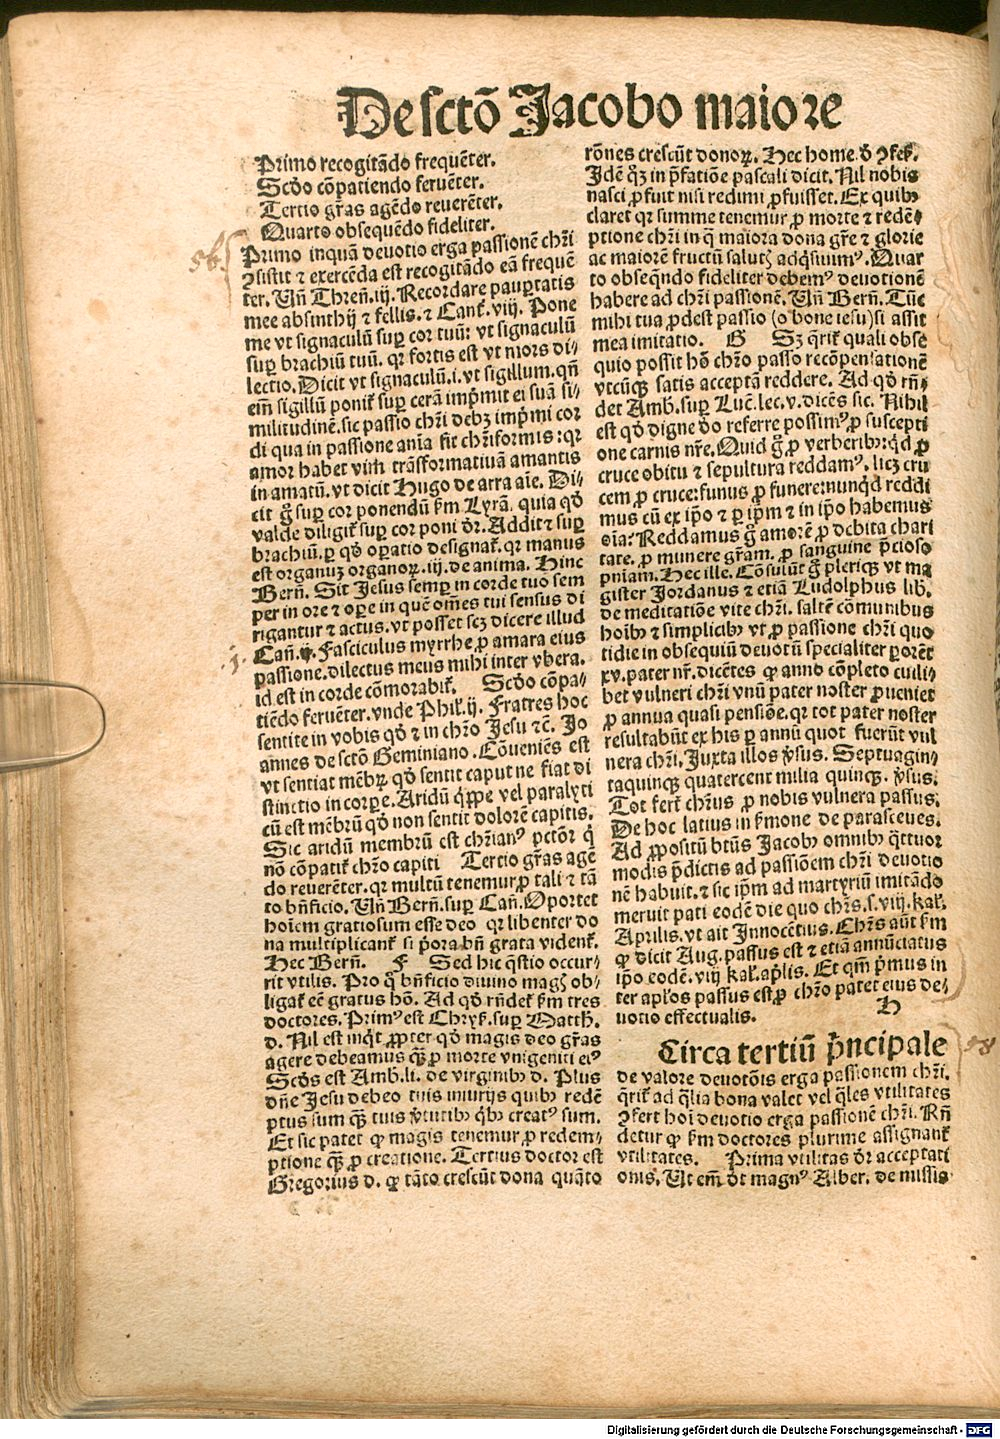 De sctō Jacobo maiore
Primo recogitādo frequēter.
Scḋo cōpatiendo feruēter.
Tertio gr̄as agēdo reuerēter.
Quarto obsequēdo fideliter.
Primo inquā deuotio erga passionē chr̄i
ꝯsistit ⁊ exercēda est recogitādo eā frequē
ter. Un̄ Thren̄. iij. Recordare paup̲tatis
mee absinthij ⁊ fellis. ⁊ Cant̄. viij. Pone
me vt signaculū sup̲ cor tuū: vt signaculū
sup̲ brachiū tuū. qr fortis est vt mors di-
lectio. Dicit vt signaculū .i. vt sigillum. qn̄
em̄ sigillū ponit̄ sup̲ cerā imp̄mit ei suā si-
militudinē. sic passio chr̄i debꝫ imp̄mi cor
di qua in passione aīa fit chr̄iformis: qr
amor habet vim trāsformatiuā amantis
in amatū. vt dicit Hugo de arra aīe. Di-
cit g̊ sup̲ cor ponendū ẜm Lyrā. quia qḋ
valde diligit̄ sup̲ cor poni ḋr. Addit ⁊ sup̲
brachiū. p̲ qḋ op̲atio designat̄. qr manus
est organuꝫ organoꝝ. iij. de anima. Hinc
Bern̄. Sit Jesus semp̲ in corde tuo sem
per in ore ⁊ op̲e in quē om̄es tui sensus di
rigantur ⁊ actus. vt posset scꝫ dicere illud
.j. Can̄. ij. Fasciculus myrrhe ꝓ amara eius
passione. dilectus meus mihi inter vbera.
id est in corde cōmorabit̄. Scḋo cōpa-
tiēdo feruēter. vnde Phil̄. ij. Fratres hoc
sentite in vobis qḋ ⁊ in chr̄o Jesu ⁊c̄. Jo
annes de sctō Geminiano. Cōueniēs est
vt sentiat mēbꝝ qḋ sentit caput ne fiat di
stinctio in corpe. Aridū q̇ppe vel paralyti
cū est mēbrū qḋ non sentit dolorē capitis.
Sic aridū membrū est chr̄ianꝰ pctōr q̇
nō cōpatit̄ chr̄o capiti Tertio gr̄as agē
do reuerēter. qr multū tenemur ꝓ tali ⁊ tā
to bn̄ficio. Un̄ Bern̄. sup̲ Can̄. Oportet
hoīem gratiosum esse deo qr libenter do
na multiplicant̄ si p̄ora bn̄ grata vident̄.
Hec Bern̄. F Sed hic q̄stio occur-
rit vtilis. Pro q̊ bn̄ficio diuino magꝭ ob-
ligat̄ eē gratus hō. Ad qḋ rn̄det̄ ẜm tres
doctores. Primꝰ est Chryẜ. sup̲ Matth.
d. Nil est in q̇t ꝓpter qḋ magis deo gr̄as
agere debeamus q̄ꝫ ꝓ morte vnigeniti eiꝰ
Scḋs est Amb. li. de virginibꝰ d. Plus
dn̄e Jesu debeo tuis iniurijs quibꝰ redē
ptus sum q̄ꝫ tuis v̄tutibꝰ q̇bꝰ creatꝰ sum.
Et sic patet ꝙ magis tenemur ꝓ redem-
ptione q̄ꝫ ꝓ creatione. Tertius doctor est
Gregorius d. ꝙ tāto crescūt dona quāto
rōnes crescūt donoꝝ. Hec home. ḋ ꝯfeẜ.
Idē qꝫ in p̄fatiōe pascali dicit. Nil nobis
nasci ꝓfuit nisi redimi ꝓfuisset. Ex quibꝰ
claret qr summe tenemur ꝓ morte ⁊ redē-
ptione chr̄i in q̄ maiora dona gr̄e ⁊ glorie
ac maiorē fructū salutꝭ adq̇siuimꝰ. Quar
to obseqn̄do fideliter debemꝰ deuotionē
habere ad chr̄i passionē. Un̄ Bern̄. Tūc
mihi tua ꝓdest passio (o bone iesu) si assit
mea imitatio. G Sꝫ q̄rit̄ quali obse
quio possit hō chr̄o passo recōpensationē
vtcūqꝫ satis acceptā reddere. Ad qḋ rn̄-
det Amb. sup̲ Luc̄. lec. v. dicēs sic. Nihil
est qḋ digne ḋo referre possimꝰ ꝓ suscepti
one carnis nr̄e. Quid g̊ ꝓ verberibꝰ: qd ꝓ
cruce obitu ⁊ sepultura reddamꝰ. licꝫ cru
cem ꝓ cruce: funus ꝓ funere: nunqd reddi
mus cū ex ip̄o ⁊ p̲ ip̄m ⁊ in ip̄o habemus
oīa? Reddamus g̊ amorē ꝓ debita chari
tate. ꝓ munere gr̄am. ꝓ sanguine p̄cioso
pn̄iam. Hec ille. Cōsulūt g̊ pleriqꝫ vt ma
gister Jordanus ⁊ etiā Ludolphus lib.
de meditatiōe vite chr̄i. saltē cōmunibus
hoībꝰ ⁊ simplicibꝰ vt ꝓ passione chr̄i quo
tidie in obsequiū deuotū specialiter ꝓrēt
xv. pater nr̄. dicētes ꝙ anno cōpleto cuili-
bet vulneri chr̄i vnū pater noster ꝓueniet
ꝓ annua quasi pensiōe. qr tot pater noster
resultabūt ex his p̲ annū quot fuerūt vul
nera chr̄i. Juxta illos v̄sus. Septuagin-
taquinqꝫ quatercent milia quinqꝫ. v̄sus.
Tot fert̄ chr̄us ꝓ nobis vulnera passus.
De hoc latius in ẜmone de parasceues.
Ad ꝓpositū btūs Jacobꝰ omnibꝰ q̄ttuor
modis p̄dictis ad passiōem chr̄i deuotio
nē habuit. ⁊ sic ip̄m ad martyriū imitādo
meruit pati eodē die quo chr̄s. s. viij. kal̄.
Aprilis. vt ait Innocētius. Chr̄s aūt ẜm
ꝙ dicit Aug. passus est ⁊ etiā annūciatus
ip̄o eodē. viij kal̄. ap̄lis. Et qm̄ p̄mus in
ter ap̄los passus est ꝓ chr̄o patet eius de-
uotio effectualis. H
Circa tertiū p̄ncipale
de valore deuotōis erga passionem chr̄i.
q̄rit̄ ad q̄lia bona valet vel q̄les vtilitates
ꝯfert hoī deuotio erga passionē chr̄i. Rn̄
detur ꝙ ẜm doctores plurime assignant̄
vtilitates. Prima vtilitas ḋr acceptati
onis. Ut em̄ ḋt magnꝰ Alber. de missis
Digitalisierung gefördert durch die Deutsche Forschungsgemeinschaft - DFG